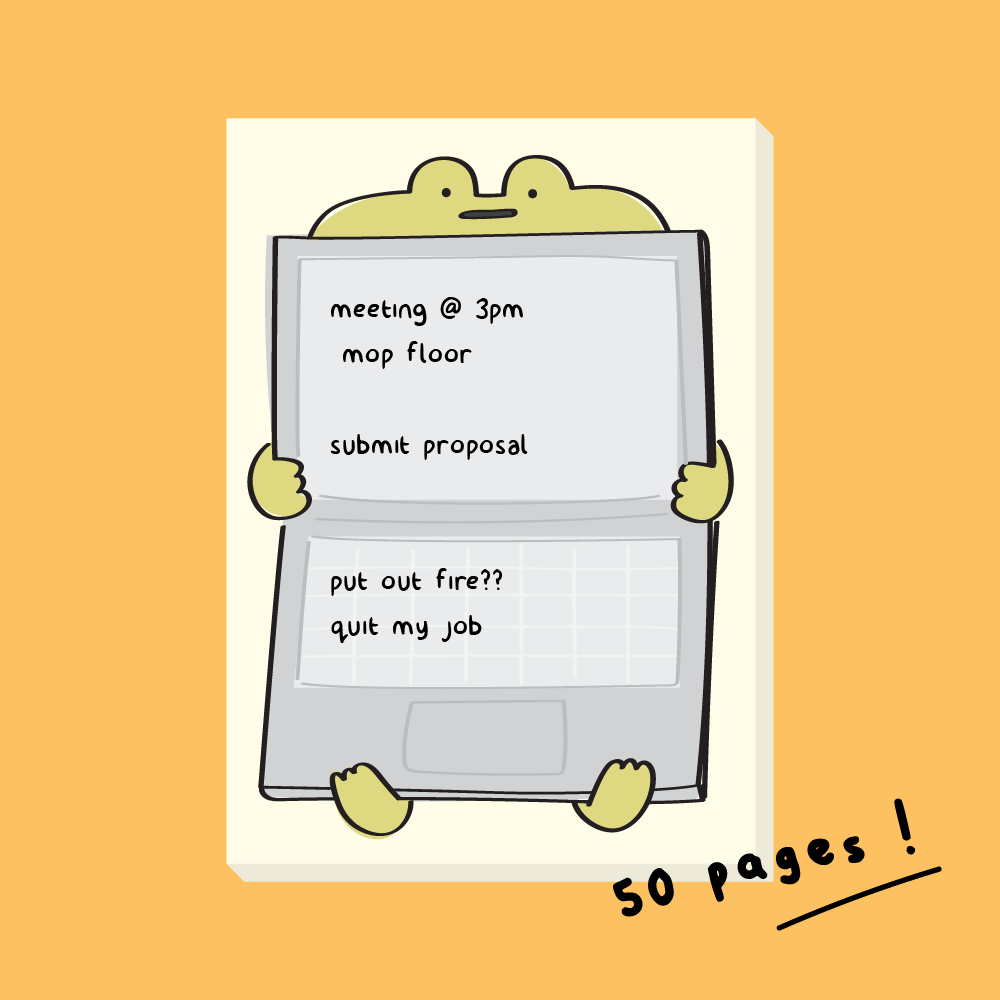 meeting @ 3pm
mop floor
submit proposal
put out fire??
quit my job
50 pages!